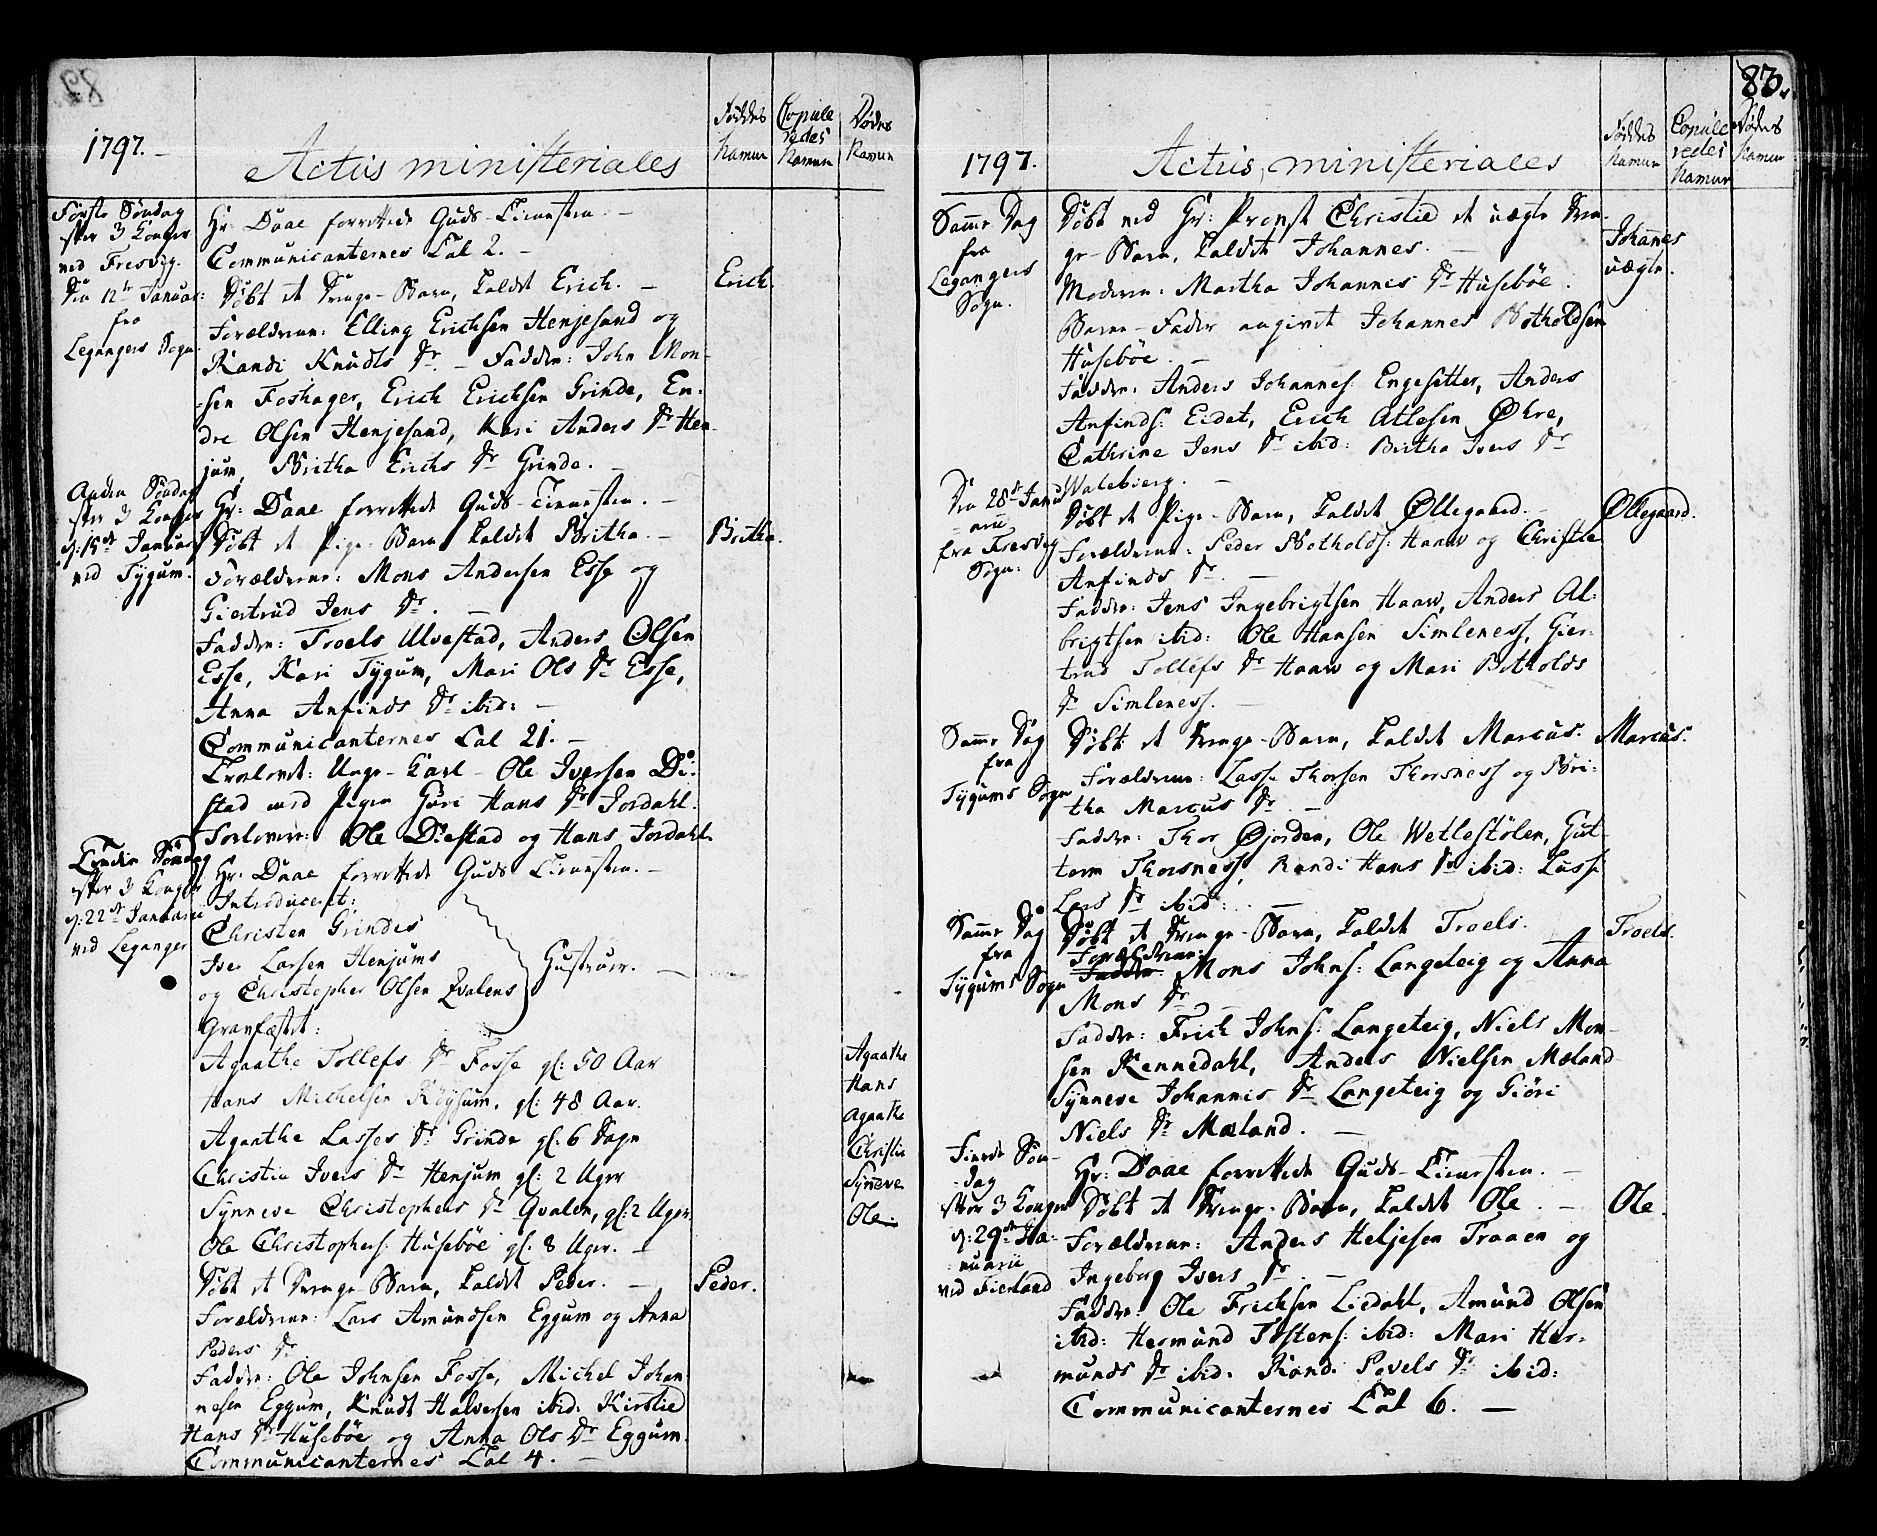 1797.
Actus ministeriales
Føddes Namm
Copule redes Namm
Dødes Namm
Første Søndag
efter 3 Konger
ved Fresvig.
Hr: Daae forrettede Guds-Tienesten. -
Communicanternes Tal 2. -
Den 12te Januar:
fra
Legangers Sogn
Døbt et Drenge-Barn, kaldet Erich. -
Erich.
Forældrene: Elling Erichsen Henjesand og
Randi Knudts Dr. - Faddre: John Mon-
sen Foshager, Erich Erichsen Grinde, En-
dre Olsen Henjesand, Kari Anders Dr Hen-
jum, Britha Erichs Dr Grinde. -
Anden Søndag
efter 3 Konger
d: 15de Januar
ved Tygum.
Hr: Daae forrettede Guds-Tienesten. -
Døbt et Pige-Barn kaldet Britha. -
Britha.
Forældrene: Mons Andersen Esse og
Giertrud Jens Dr. -
Faddre: Troels Ulvestad, Anders Olsen
Esse, Kari Tygum, Mari Ols Dr Esse,
Anna Anfinds Dr ibid: -
Communicanternes Tal 21. -
Trolovet: Unge-Karl-Ole Iversen Di-
stad med Pigen Guri Hans Dr Jordahl.
Forlovere: Ole Diestad og Hans Jordahl
Tredie Søndag
efter 3 Konger
d: 22de Januarii
ved Leganger
Hr: Daae forrettede Guds Tienesten. -
Introduceret:
Christen Grindes
Iver Larsen Henjums
og Christopher Olsen Qvalens
Hustruer. -
Gravfæstet:
Agaathe Tollefs Dr Fosse gl: 50 Aar
Agaathe
Hans Michelsen Röysum, gl: 48 Aar.
Hans
Agaathe Lasses Dr Grinde gl: 6 Dage
Agaathe
Christie Ivers Dr Henjum gl: 2 Uger
Christie
Synneve Christophers Dr Qvalen, gl: 2 Uger
Synneve
Ole Christophers: Husebøe gl: 8 Uger. -
Ole.
Døbt et Drenge Barn, kaldet Peder. -
Peder.
Forældrene: Lars Amundsen Eggum og Anna
Peders Dr
Faddre: Ole Johnsen Fosse, Michel Johan
nesen Eggum, Knudt Halversen ibid: Kirstie
Hans Dr Husebøe og Anna Ols Dr Eggum.
Communicanternes Tal 4. -
83.
1797.
Actus ministeriales
Føddes Namm
Copule redes Namm
Dødes Namm
Samme Dag
fra
Legangers
Sogn.
Døbt ved Hr: Provst Christie et uægte Dren-
ge-Barn, kaldet Johannes. -
Johanes
uægte.
Moderen: Martha Johannis Dr Husebøe.
Barne-Fader angivet Johannes Botholdsen
Husebøe. -
Faddre: Anders Johannes: Engesetter, Anders
Anfinds: Eidet, Erich Atlesen Øhre,
Cathrine Jens Dr ibid: Britha Ivers Dr
Walebierg. -
Den 28de Janu-
arii
fra Fresvig
Sogn:
Døbt et Pige-Barn, kaldet Øllegaard. -
Øllegaard.
Forældrene: Peder Botholds: Haaw og Christie
Anfinds Dr. -
Faddre: Jens Ingebrigtsen Haaw, Anders Al-
brigtsen ibid: Ole Hansen Simleness, Gier-
trud Tollefs Dr Haaw og Mari Botholds
Dr Simleness. -
Samme Dag
fra
Tygums Sogn
Døbt et Drenge-Barn, kaldet Marcus.
Marcus.
Forældrene: Lasse Thorsen Thorsness og Bri-
tha Marcus Dr. -
Faddre: Thor Øjorden, Ole Wetlestölen, Gut-
torm Thorsness, Randi Hans Dr ibid: Lasse
Lars Dr ibid: -
Samme Dag
fra
Tygums Sogn
Døbt et Drenge-Barn, kaldet Troels.
Troels.
Forældrene:
Faddre Mons Johns: Langeteig og Anna
Mons Dr -
Faddre: Erich Johns: Langeteig, Niels Mon-
sen Rennedahl, Anders Nielsen Mæland
Synneve Johannis Dr Langeteig og Giöri
Niels Dr Mæland. -
Fierde Søn-
dag
efter 3 Konger
d: 29de Ja-
nuarii
ved Fierland
Hr: Daae forrettede Guds-Tienesten. -
Døbt et Drenge-Barn, kaldet Ole. -
Ole.
Forældrene: Anders Heljesen Traaen og
Ingebug Ivers Dr. -
Faddre: Ole Erichsen Liedahl, Amund Olsen
ibid: Hermund Tostens: ibid: Mari Her-
munds Dr ibid. Randi Povels Dr ibid:
Communicanternes Tal 6. -